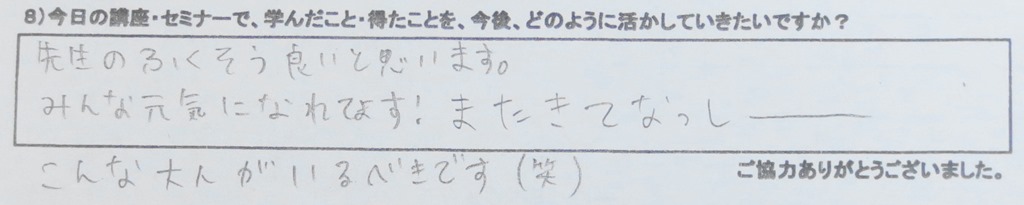 8)今日の講座・セミナーで、学んだこと・得たことを、今後、どのように活かしていきたいですか？
先生のふくそう良いと思います。
みんな元気になれてます! またきてなっしー
こんな大人がいるべきです(笑)
ご協力ありがとうございました。